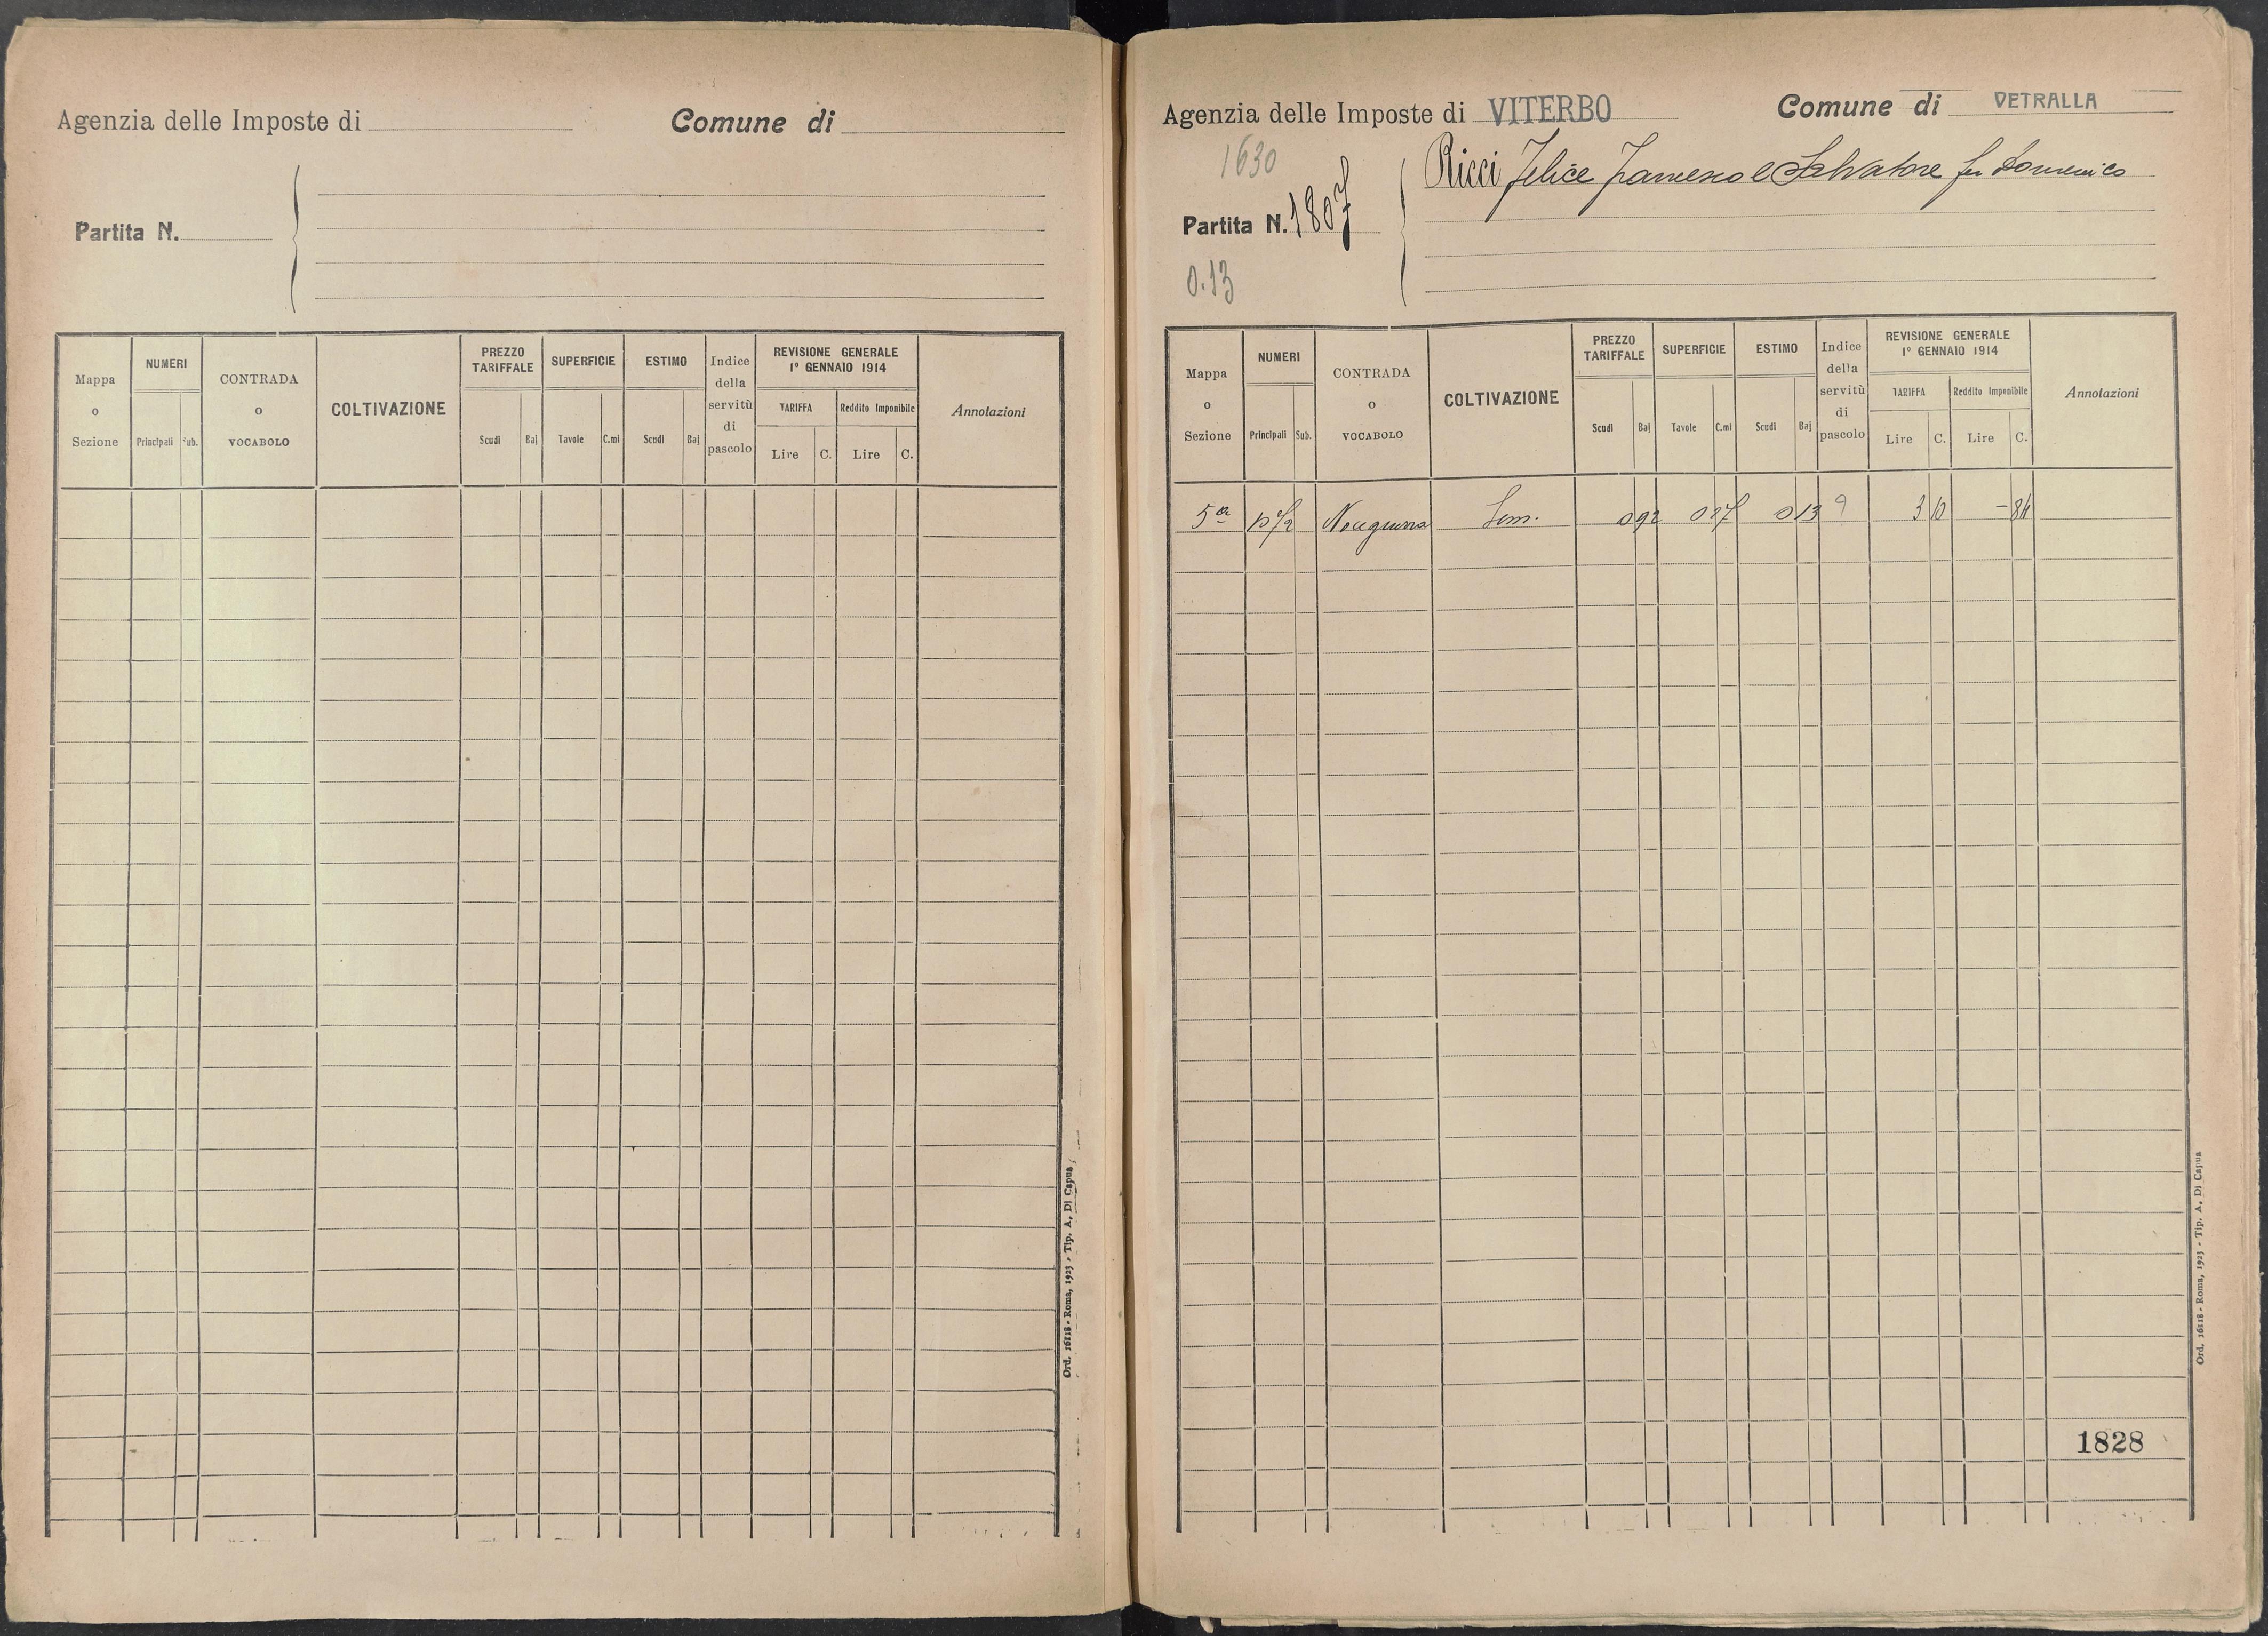 Agenzia delle Imposte di
Comune di
Partita N.
Mappa o Sezione
NUMERI
Principali
Sub.
CONTRADA o VOCABOLO
COLTIVAZIONE
PREZZO TARIFFALE
Scudi
Baj
SUPERFICIE
Tavole
C.mi
ESTIMO
Scudi
Baj
Indice della servitù di pascolo
REVISIONE GENERALE
1° GENNAIO 1914
TARIFFA
Reddito Imponibile
Lire
C.
Lire
C.
Annotazioni
Ord. 16118 - Roma, 1923 - Tip. A. Di Capua
Agenzia delle Imposte di VITERBO
Comune di VETRALLA
1630
Ricci Felice Francesco e Salvatore fu Domenico
Partita N. 1807
0.13
Mappa o Sezione
NUMERI
Principali
Sub.
CONTRADA o VOCABOLO
COLTIVAZIONE
PREZZO TARIFFALE
Scudi
Baj
SUPERFICIE
Tavole
C.mi
ESTIMO
Scudi
Baj
Indice della servitù di pascolo
REVISIONE GENERALE
1° GENNAIO 1914
TARIFFA
Reddito Imponibile
Lire
C.
Lire
C.
Annotazioni
5a Sem. 0 92 0 13 9 3 10
1828
Ord. 16118 - Roma, 1923 - Tip. A. Di Capua